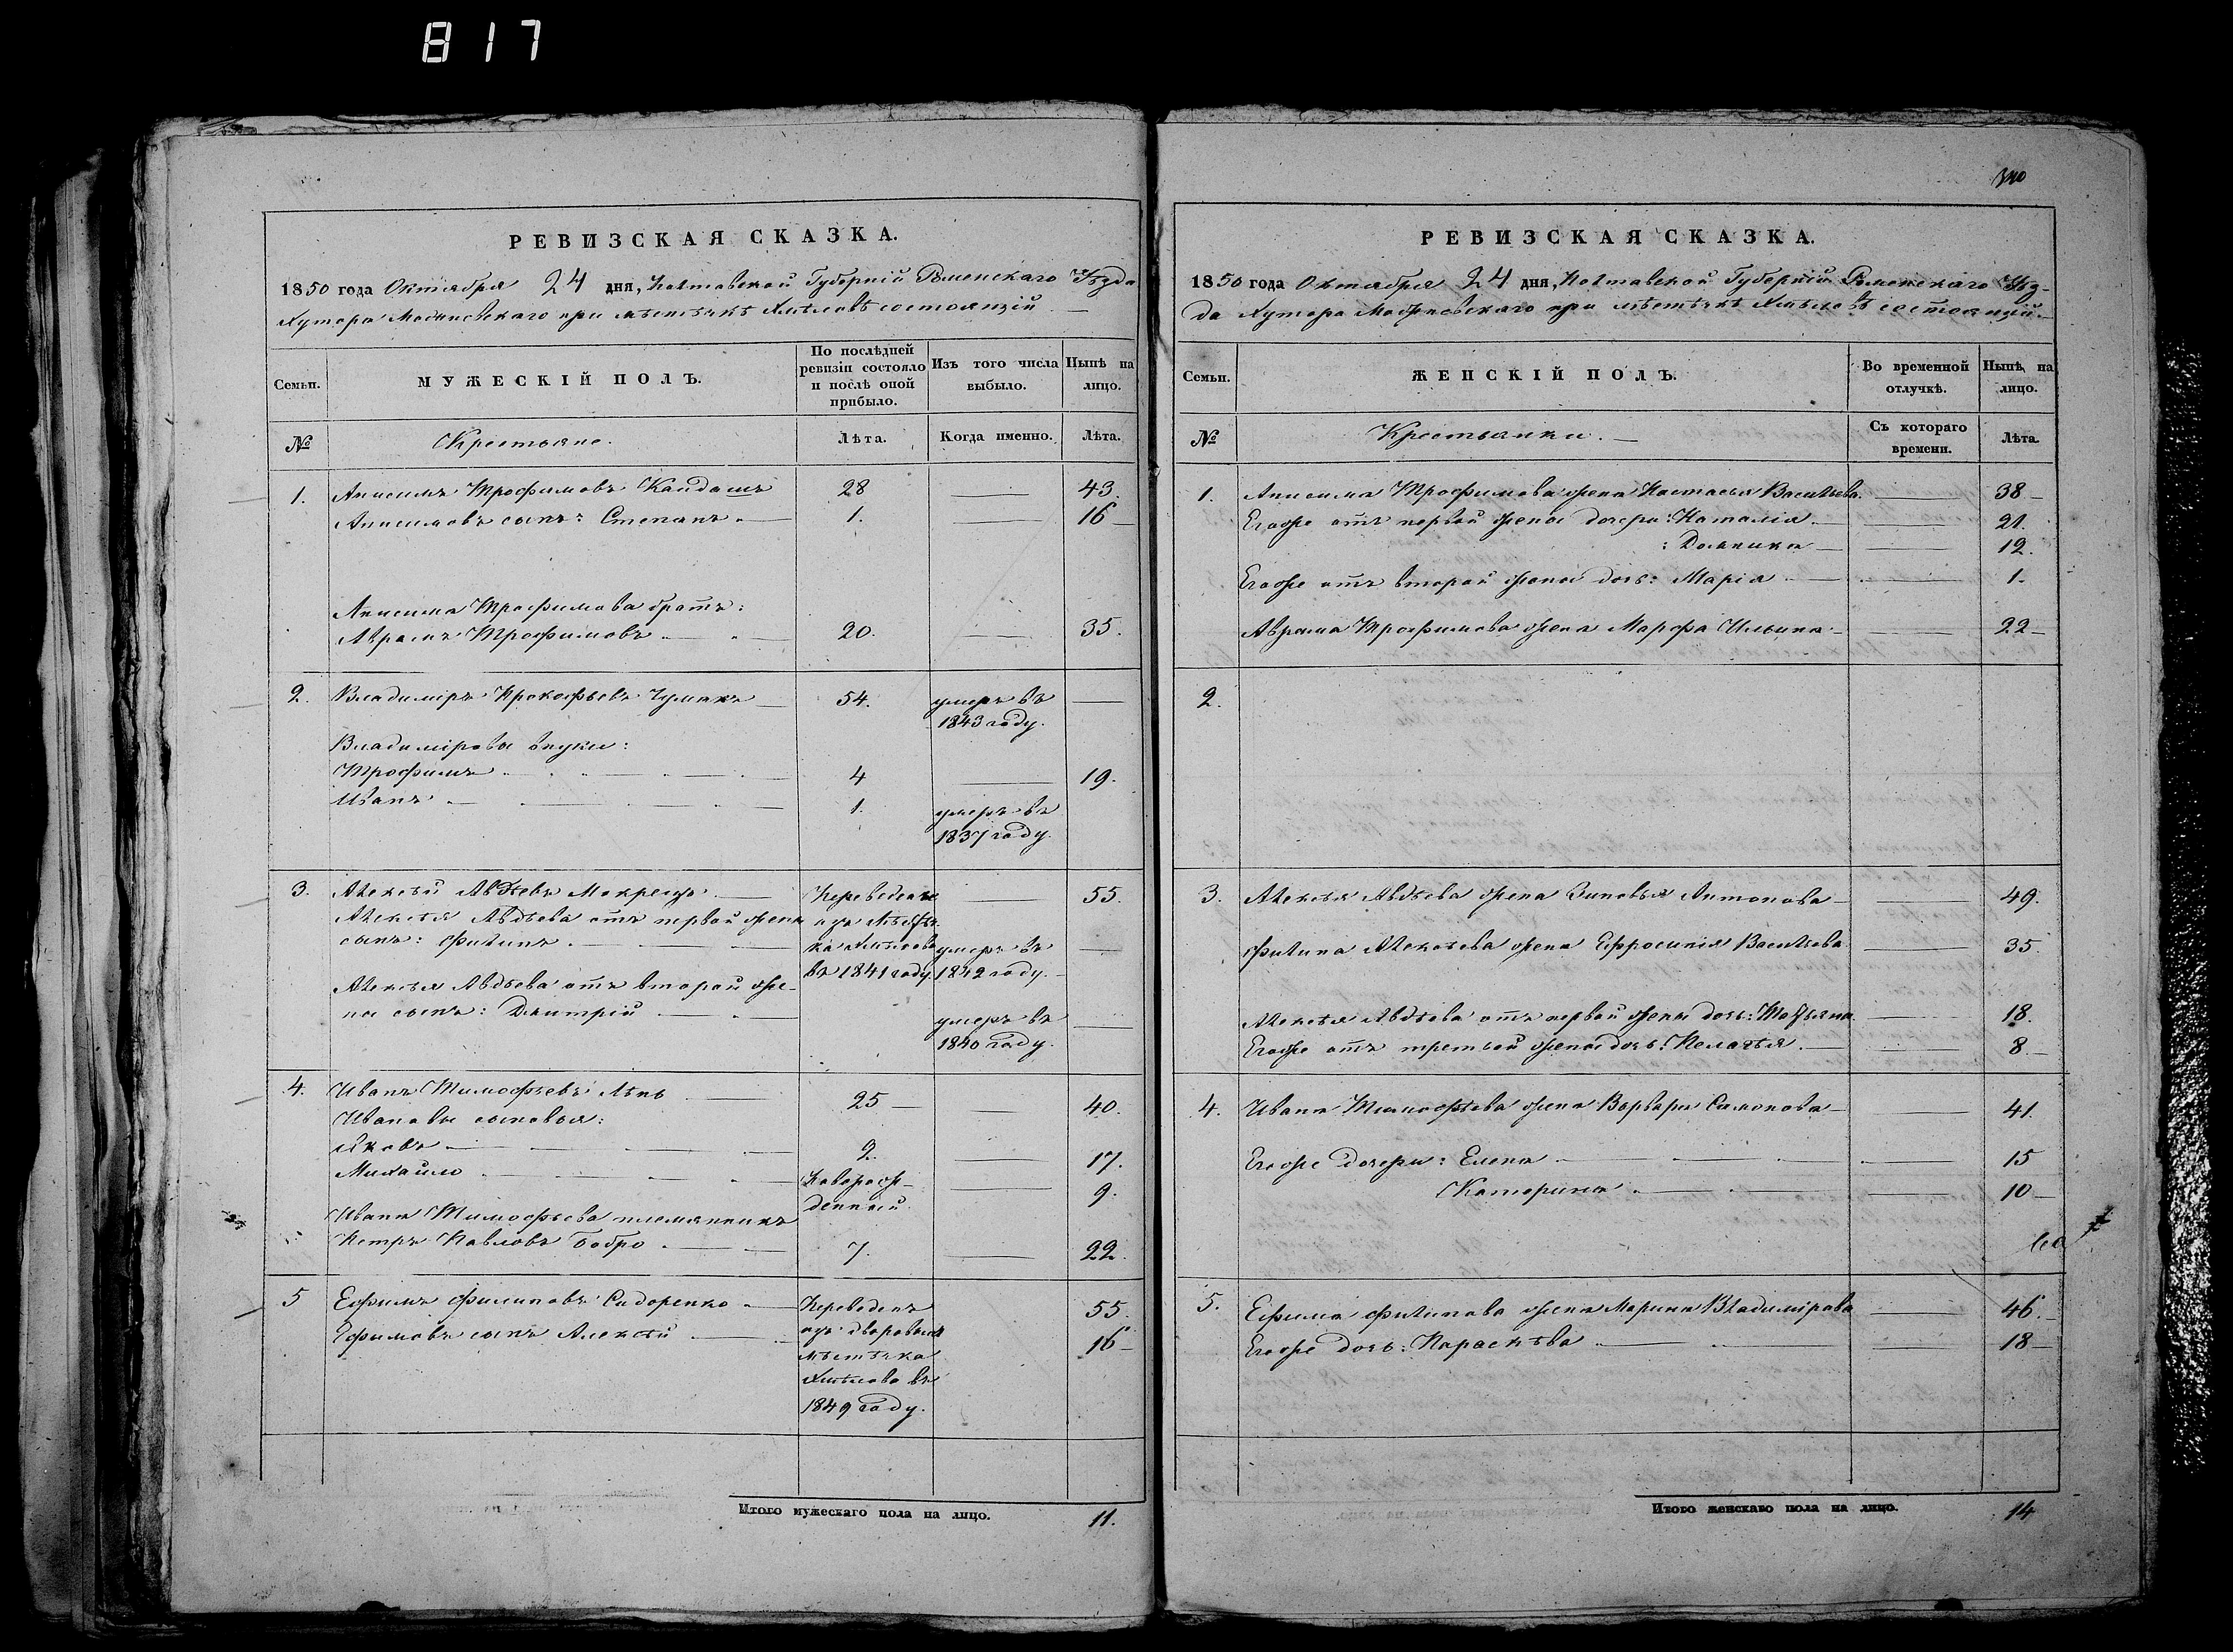 817
РЕВИЗСКАЯ СКАЗКА.
1850 года Октября 24 дня, Полтавской Губерніи Роменскаго Уѣзда
Хутора при мѣстечкѣ Хмѣловѣ состоящій
Семьи.
МУЖЕСКІЙ ПОЛЪ.
По послѣдней ревизіи состояло и послѣ оной прибыло.
Изъ того числа выбыло.
Нынѣ на лицо.
№
Крестьяне.
Лѣта.
Когда именно.
Лѣта.
1. Анисимъ Трофимовъ Кандашъ 28 43.
Анисимовъ сынъ: Степанъ 1. 16
Анисима Трофимова братъ:
Аврамъ Трофимовъ 20. 35.
2. Владиміръ Прокофьевъ Чумакъ 54. умеръ въ 1843 году.
Владиміровы внуки:
Трофимъ 4 19.
Иванъ 1. умеръ въ 1837 году.
3. Алексѣй Авдѣевъ Мокрецъ Переведенъ изъ мѣстечка Хмѣлова въ 1841 году. 55.
Алексѣя Авдѣева отъ первой жены
сынъ: Филипъ умеръ въ 1842 году.
Алексѣя Авдѣева отъ второй же-
ны сынъ: Дмитрій умеръ въ 1840 году.
4. Иванъ Тимофѣевъ Лѣпь 25 40.
Ивановы сыновья:
Яковъ 2. 17.
Михайло Новорожденный 9.
Ивана Тимофѣева племянникъ
Петръ Павловъ Бобро 7. 22.
5 Ефимъ Филиповъ Сидоренко Переведенъ изъ дворовыхъ мѣстечка Хмѣлова въ 1849 году. 55.
Ефимовъ сынъ Алексѣй 16
Итого мужескаго пола на лицо. 11.
РЕВИЗСКАЯ СКАЗКА.
1850 года Октября 24 дня, Полтавской Губерніи Роменскаго Уѣз-
да Хутора при мѣстечкѣ Хмѣловѣ состоящій
Семьи.
ЖЕНСКІЙ ПОЛЪ.
Во временной отлучкѣ.
Нынѣ на лицо.
№
Крестьянки.
Съ котораго времени.
Лѣта.
1. Анисима Трофимова жена Настасья Васильева 38
Егоже отъ первой жены дочери: Наталія 21.
: Домникія 12.
Егоже отъ второй жены дочь: Марія 1.
Аврама Трофимова жена Марфа Ильина 22
2.
3. Алексѣя Авдѣева жена Зиновья Антонова 49.
Филипа Алексѣева жена Ефросинія Васильева 35.
Алексѣя Авдѣева отъ первой жены дочь: Татьяна 18.
Егоже отъ третьей жены дочь: Пелагѣя 8.
4. Ивана Тимофѣева жена Варвара Симонова 41.
Егоже дочери: Елена 15
Катерина 10
5. Ефима Филипова жена Марина Владимірова 46.
Егоже дочь: Параскѣва 18
Итого женскаго пола на лицо. 14